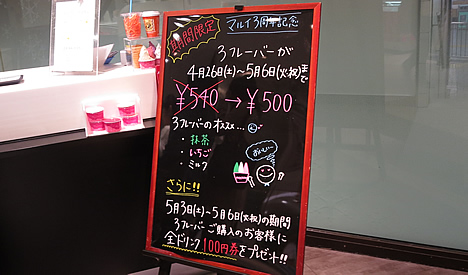 期間限定
マルイ3周年記念
3フレーバーが
4月26日(土)〜5月6日(火・祝)まで
¥540→¥500
3フレーバーのオススメ…
・抹茶
・いちご
・ミルク
おいしい
さらに!!
5月3日(土)〜5月6日(火・祝)の期間
3フレーバーご購入のお客様に
全ドリンク100円券をプレゼント!!